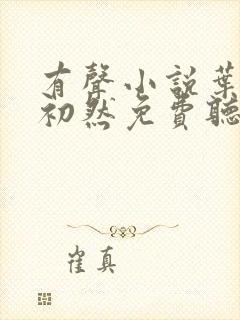 有聲小説葉
初然免費聽
崔真